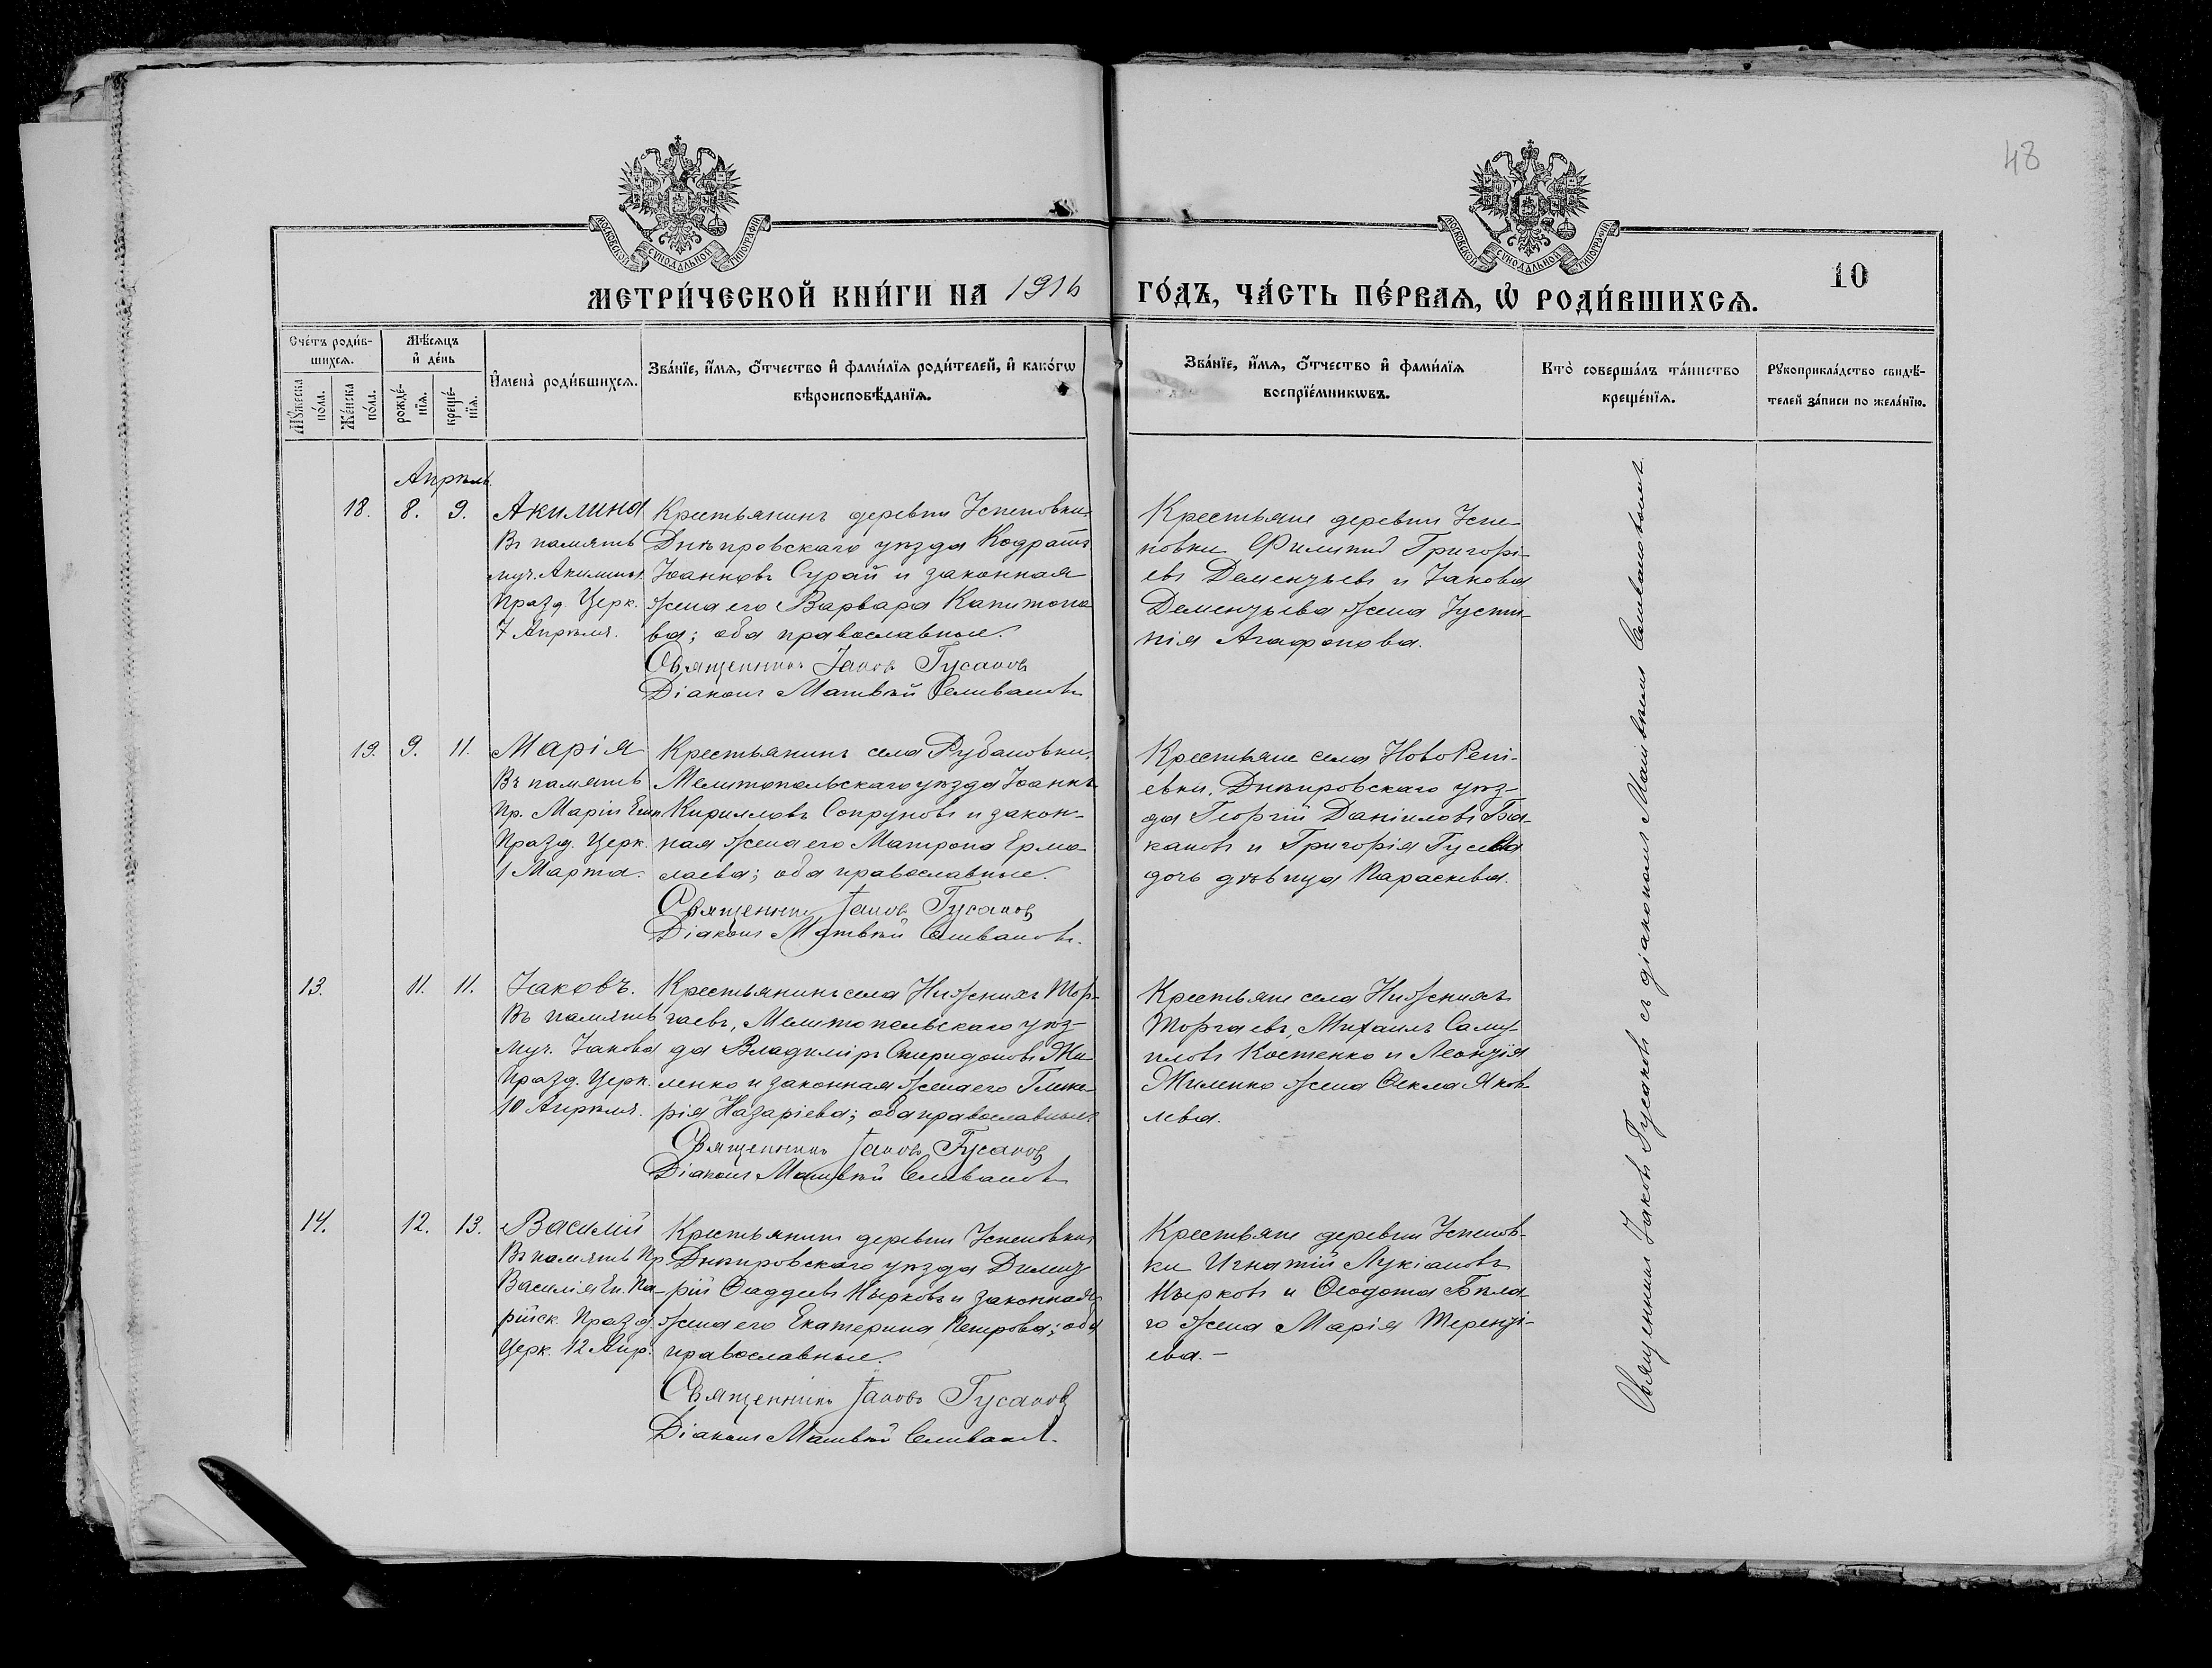 48
МОСКОВСКОЙ СѴНОДАЛЬНОЙ ТИПОГРАФІИ
МОСКОВСКОЙ СѴНОДАЛЬНОЙ ТИПОГРАФІИ
МЕТРИ́ЧЕСКОЙ КНИ́ГИ НА 1916 ГО́ДЪ, ЧА́СТЬ ПЕ́РВАЯ, Ѡ҆ РОДИ́ВШИХСЯ.
10
Сче́тъ роди́в-
шихся.
Мѣ́сяцъ
и҆ де́нь
Мꙋ́жеска
по́ла.
Же́нска
по́ла.
рожде́-
нїя.
креще́-
нїя.
И҆мена̀ роди́вшихся.
Зва́нїе, и҆́мя, ѻ҆́тчество и҆ фами́лїя роди́телей, и҆ како́гѡ
вѣроисповѣ́данїя.
Зва́нїе, и҆́мя, ѻ҆́тчество и҆ фами́лїя
воспрїе́мникѡвъ.
Кто̀ соверша́лъ та́инство
креще́нїя.
Рꙋкоприкла́дство свидѣ́-
телей за́писи по жела́нїю.
Апрѣль.
18. 8. 9.
Акилина
Въ память
муч. Акилины.
Празд. Церк.
7 Апрѣля.
Крестьянинъ деревни Успеновки,
Днѣпровскаго уѣзда Кодратъ
Іоанновъ Сурай и законная
жена его Варвара Капитоно-
ва; оба православные.
Священникъ Іаковъ Гусаковъ
Діаконъ Матвѣй Селивановъ
Крестьяне деревни Успе-
новки Филиппъ Григорі-
евъ Дементьевъ и Іакова
Дементьева жена Іусти-
нія Агафонова.
19. 9. 11.
Марія
Въ память
Пр. Маріи Егип.
Празд. Церк.
1 Марта.
Крестьянинъ села Рубановки,
Мелитопольскаго уѣзда Іоаннъ
Кирилловъ Сопруновъ и закон-
ная жена его Матрона Ермо-
лаева; оба православные.
Священникъ Іаковъ Гусаковъ
Діаконъ Матвѣй Селивановъ.
Крестьяне села Ново Репі-
евки, Днѣпровскаго уѣз-
да Георгій Даніиловъ Ба-
кановъ и Григорія Гусева
дочь дѣвица Параскева.
13. 11. 11.
Іаковъ.
Въ память
муч. Іакова
Празд. Церк.
10 Апрѣля.
Крестьянинъ села Нижнихъ Тор-
гаевъ, Мелитопольскаго уѣз-
да Владиміръ Спиридоновъ Жи-
ленко и законная жена его Глике-
рія Назаріева; оба православные.
Священникъ Іаковъ Гусаковъ
Діаконъ Матвѣй Селивановъ
Крестьяне села Нижнихъ
Торгаевъ, Михаилъ Саму-
иловъ Костенко и Леонтія
Жиленко жена Ѳекла Яков-
лева.
14. 12. 13.
Василій
Въ память Пр.
Василія Еп. Па-
рійск. Празд.
Церк. 12 Апр.
Крестьянинъ деревни Успеновки,
Днѣпровскаго уѣзда Димит-
рій Ѳаддеевъ Нырковъ и законная
жена его Екатерина Петрова; оба
православные.
Священникъ Іаковъ Гусаковъ
Діаконъ Матвѣй Селивановъ.
Крестьяне деревни Успенов-
ки Игнатій Лукіановъ
Нырковъ и Ѳеодота Бѣла-
го жена Марія Теренті-
ева.-
Священникъ Іаковъ Гусаковъ съ діакономъ Матвѣемъ Селивановымъ.